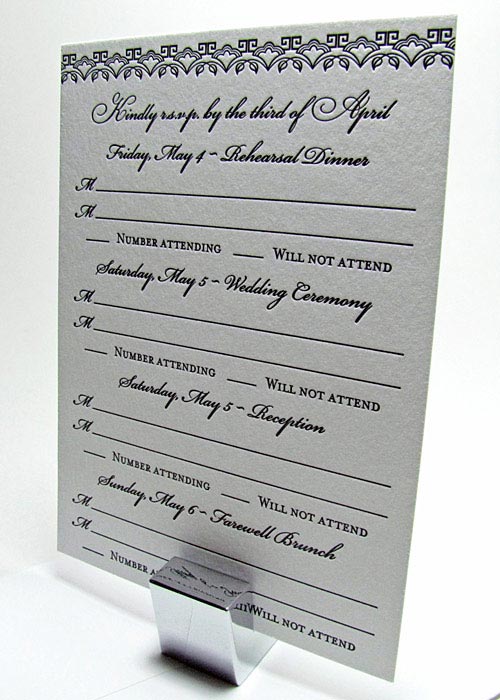 Kindly r.s.v.p. by the third of April
Friday, May 4 ~ Rehearsal Dinner
M
M
Number attending Will not attend
Saturday, May 5 ~ Wedding Ceremony
M
M
Number attending Will not attend
Saturday, May 5 ~ Reception
M
M
Number attending Will not attend
Sunday, May 6 ~ Farewell Brunch
M
M
Number Will not attend